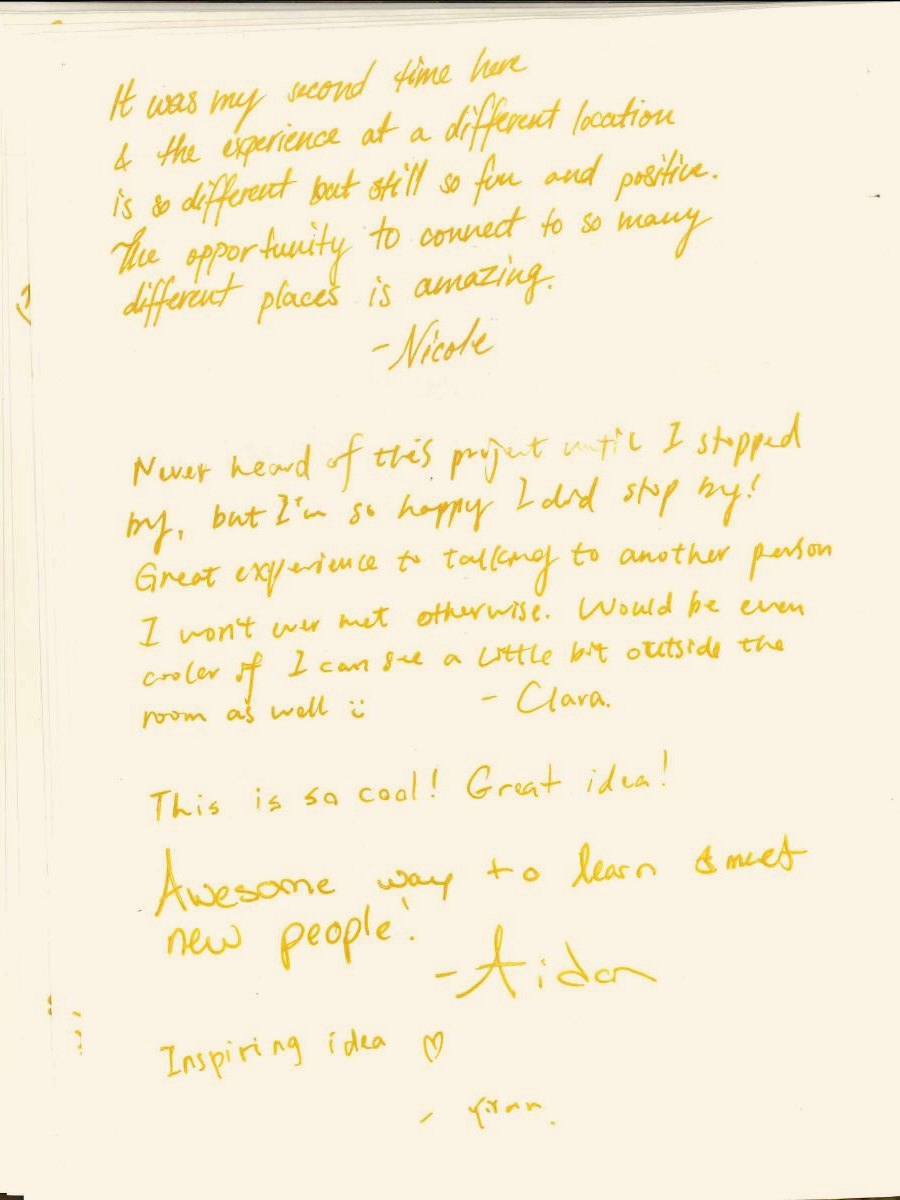 It was my second time here
& the experience at a different location
is so different but still so fun and positive.
The opportunity to connect to so many
different places is amazing.
- Nicole
Never heard of this project until I stopped
by, but I'm so happy I did stop by!
Great experience to talking to another person
I won't ever met otherwise. Would be even
cooler if I can see a little bit outside the
room as well :)
- Clara.
This is so cool! Great idea!
Awesome way to learn & meet
new people!
- Aidan
Inspiring idea ♡
- Yiran.